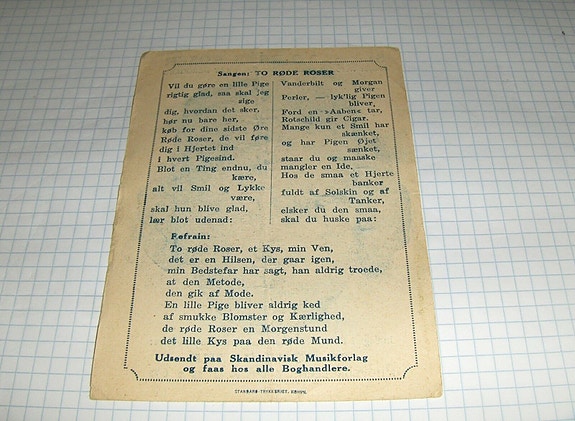 Sangen: TO RØDE ROSER
Vil du gøre en lille Pige
rigtig glad, saa skal jeg
sige
dig, hvordan det sker,
hør nu bare her,
køb for dine sidste Øre
Røde Roser, de vil føre
dig i Hjertet ind
i hvert Pigesind.
Blot en Ting endnu, du
kære,
alt vil Smil og Lykke
være,
skal hun blive glad,
lær blot udenad:
Vanderbilt og Morgan
giver
Perler, — lyk'lig Pigen
bliver,
Ford en »Aaben« tar,
Rotschild gir Cigar.
Mange kun et Smil har
skænket,
og har Pigen Øjet
sænket,
staar du og maaske
mangler en Ide.
Hos de smaa et Hjerte
banker
fuldt af Solskin og af
Tanker,
elsker du den smaa,
skal du huske paa:
Refrain:
To røde Roser, et Kys, min Ven,
det er en Hilsen, der gaar igen,
min Bedstefar har sagt, han aldrig troede,
at den Metode,
den gik af Mode.
En lille Pige bliver aldrig ked
af smukke Blomster og Kærlighed,
de røde Roser en Morgenstund
det lille Kys paa den røde Mund.
Udsendt paa Skandinavisk Musikforlag
og faas hos alle Boghandlere.
STANDARD-TRYKKERIET, KBHVN.